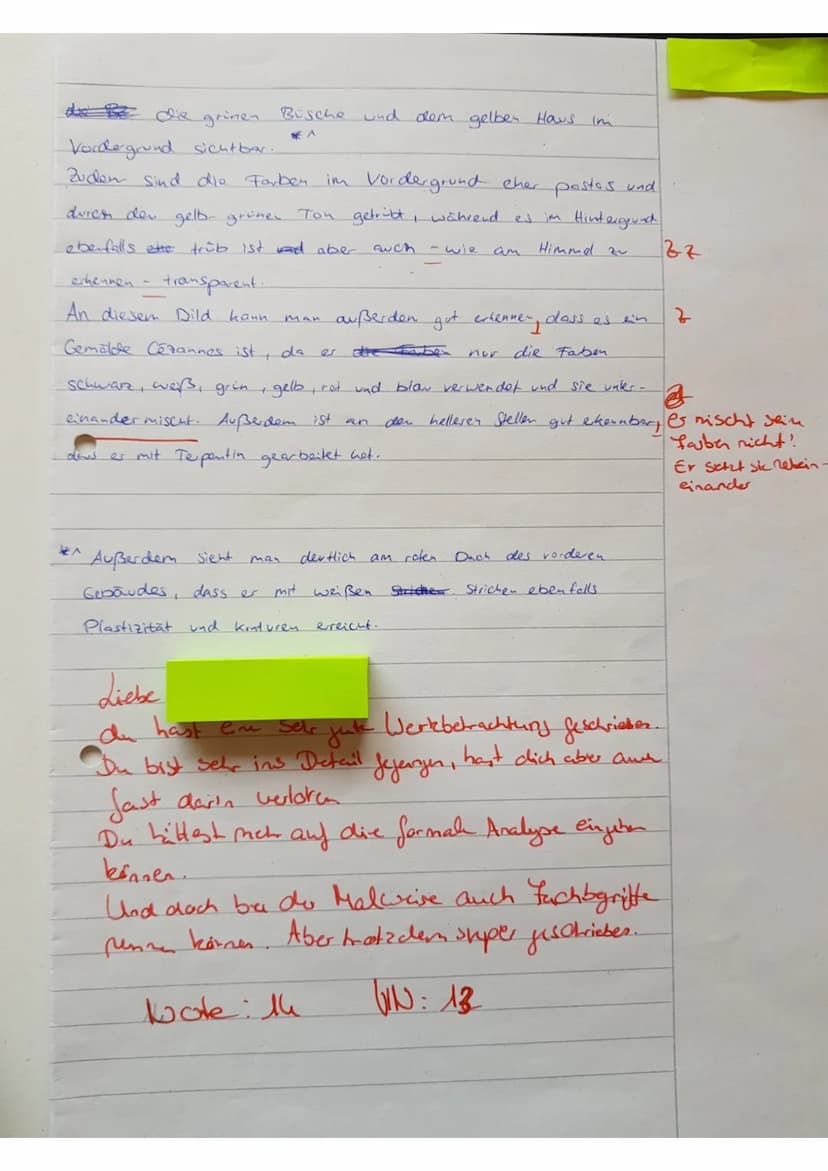 die grünen Büsche und dem gelben Haus im
Vordergrund sichtbar. *^
Zudem sind die Farben im Vordergrund eher pastos und
durch den gelb-grünen Ton getrübt, während es im Hintergrund
ebenfalls trüb ist aber auch - wie am Himmel zu
ZZ
erkennen - transparent.
An diesem Bild kann man außerdem gut erkennen, dass es ein
Z
Gemälde Cézannes ist, da er nur die Faben
schwarz, weiß, grün, gelb, rot und blau verwendet und sie unter-
einander mischt. Außerdem ist an den helleren Stellen gut erkennbar,
dass er mit Terpentin gearbeitet hat.
Er mischt sein
Farben nicht!
Er setzt sie neben-
einander
*^ Außerdem sieht man deutlich am roten Dach des vorderen
Gebäudes, dass er mit weißen Strichen ebenfalls
Plastizität und Konturen erreicht.
Liebe
du hast eine sehr gute Werkbetrachtung geschrieben.
Du bist sehr ins Detail gegangen, hast dich aber auch
fast darin verloren
Du hättest mehr auf die formale Analyse eingehen
können.
Und doch bei der Malweise auch Fachbegriffe
nennen können. Aber trotzdem super geschrieben.
Note: 14 VN: 13